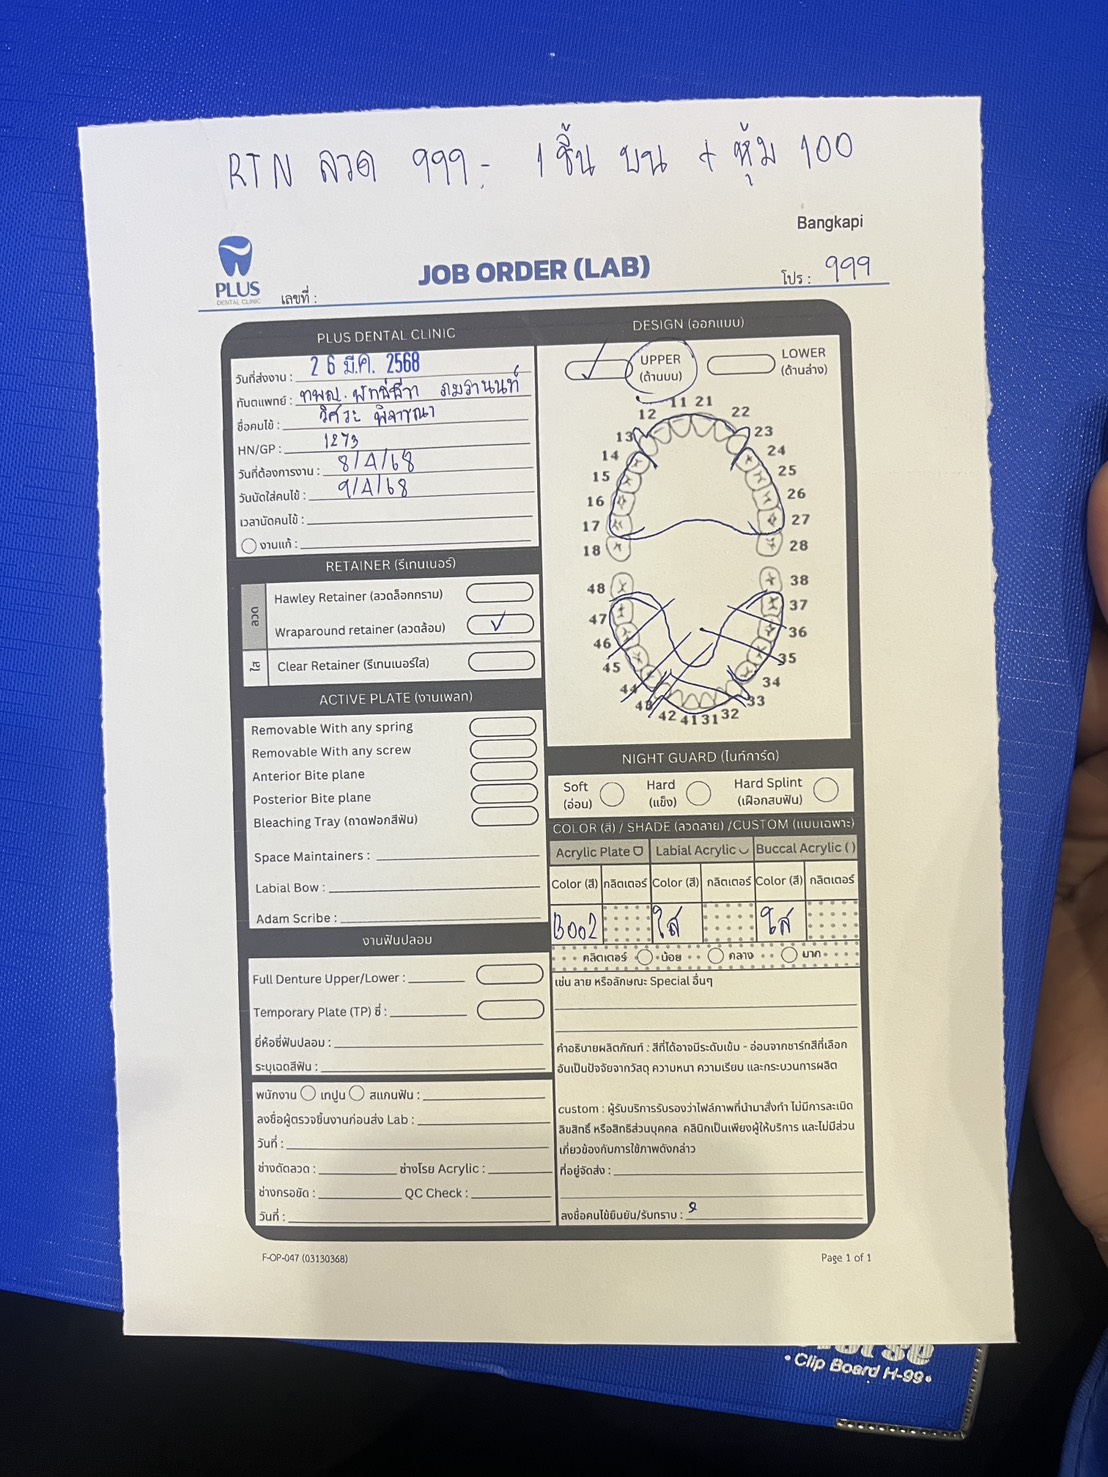 RTN ลวด 999.- 1 ชิ้น บน + หุ้ม 100
Bangkapi
PLUS
DENTAL CLINIC
เลขที่ :
JOB ORDER (LAB)
โปร : 999
PLUS DENTAL CLINIC
วันที่ส่งงาน : 26 มี.ค. 2568
ทันตแพทย์ : ทพญ.
ชื่อคนไข้ : วิศวะ พิจารณา
HN/GP : 1273
วันที่ต้องการงาน : 8/4/68
วันนัดใส่คนไข้ : 9/4/68
เวลานัดคนไข้ :
งานแก้ :
RETAINER (รีเทนเนอร์)
ลวด
Hawley Retainer (ลวดล็อกกราม)
Wraparound retainer (ลวดล้อม) ✓
ใส
Clear Retainer (รีเทนเนอร์ใส)
ACTIVE PLATE (งานเพลท)
Removable With any spring
Removable With any screw
Anterior Bite plane
Posterior Bite plane
Bleaching Tray (ถาดฟอกสีฟัน)
Space Maintainers :
Labial Bow :
Adam Scribe :
งานฟันปลอม
Full Denture Upper/Lower :
Temporary Plate (TP) ซี่ :
ยี่ห้อซี่ฟันปลอม :
ระบุเฉดสีฟัน :
พนักงาน เทปูน สแกนฟัน :
ลงชื่อผู้ตรวจชิ้นงานก่อนส่ง Lab :
วันที่ :
ช่างดัดลวด : ช่างโรย Acrylic :
ช่างกรอขัด : QC Check :
วันที่ :
DESIGN (ออกแบบ)
✓ UPPER
(ด้านบน)
LOWER
(ด้านล่าง)
11 21
12 22
13 23
14 24
15 25
16 26
17 27
18 28
48 38
47 37
46 36
45 35
44 34
43 33
42 41 31 32
NIGHT GUARD (ไนท์การ์ด)
Soft
(อ่อน)
Hard
(แข็ง)
Hard Splint
(เฝือกสบฟัน)
COLOR (สี) / SHADE (ลวดลาย) /CUSTOM (แบบเฉพาะ)
Acrylic Plate Labial Acrylic Buccal Acrylic ( )
Color (สี) กลิตเตอร์ Color (สี) กลิตเตอร์ Color (สี) กลิตเตอร์
B002 ใส ใส
กลิตเตอร์ น้อย กลาง มาก
เช่น ลาย หรือลักษณะ Special อื่นๆ
คำอธิบายผลิตภัณฑ์ : สีที่ได้อาจมีระดับเข้ม - อ่อนจากชาร์ทสีที่เลือก
อันเป็นปัจจัยจากวัสดุ ความหนา ความเรียบ และกระบวนการผลิต
custom : ผู้รับบริการรับรองว่าไฟล์ภาพที่นำมาสั่งทำ ไม่มีการละเมิด
ลิขสิทธิ์ หรือสิทธิส่วนบุคคล คลินิกเป็นเพียงผู้ให้บริการ และไม่มีส่วน
เกี่ยวข้องกับการใช้ภาพดังกล่าว
ที่อยู่จัดส่ง :
ลงชื่อคนไข้ยืนยัน/รับทราบ :
F-OP-047 (03130368)
Page 1 of 1
• Clip Board H-99 •